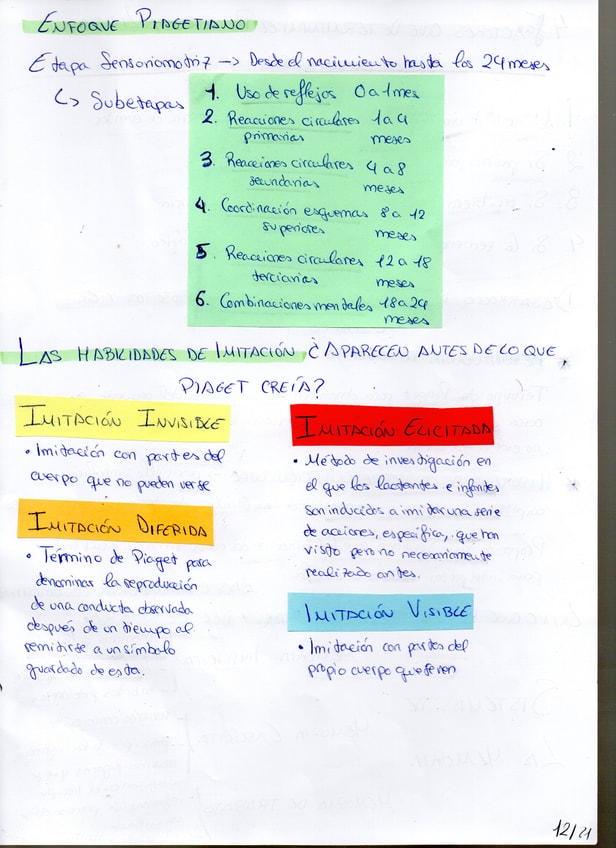 ENFOQUE PIAGETIANO
Etapa Sensoriomotriz → Desde el nacimiento hasta los 24 meses
↳ Subetapas
1. Uso de reflejos 0 a 1 mes
2. Reacciones circulares 1 a 4
primarias meses
3. Reacciones circulares 4 a 8
secundarias meses
4. Coordinación esquemas 8 a 12
superiores meses
5. Reacciones circulares 12 a 18
terciarias meses
6. Combinaciones mentales 18 a 24
meses
LAS HABILIDADES DE IMITACIÓN ¿APARECEN ANTES DE LO QUE
PIAGET CREÍA?
IMITACIÓN INVISIBLE
• Imitación con partes del
cuerpo que no pueden verse
IMITACIÓN DIFERIDA
• Término de Piaget para
denominar la reproducción
de una conducta observada
después de un tiempo al
remitirse a un símbolo
guardado de esta.
IMITACIÓN ELICITADA
• Método de investigación en
el que los lactantes e infantes
son inducidos a imitar una serie
de acciones, específica, que han
visto pero no necesariamente
realizado antes.
IMITACIÓN VISIBLE
• Imitación con partes del
propio cuerpo que se ven
12/21